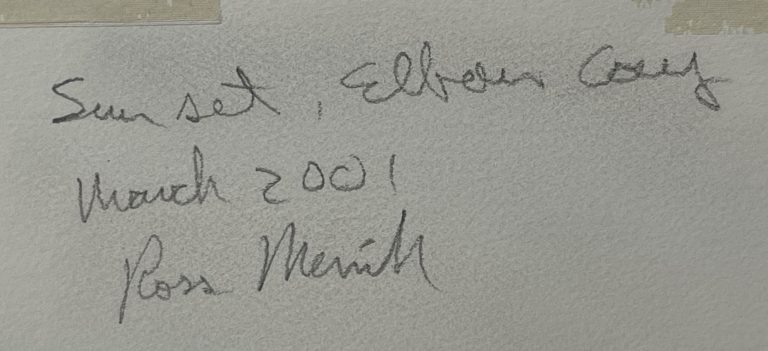 Sunset, Elbow Cay
March 2001
Ross Merrill